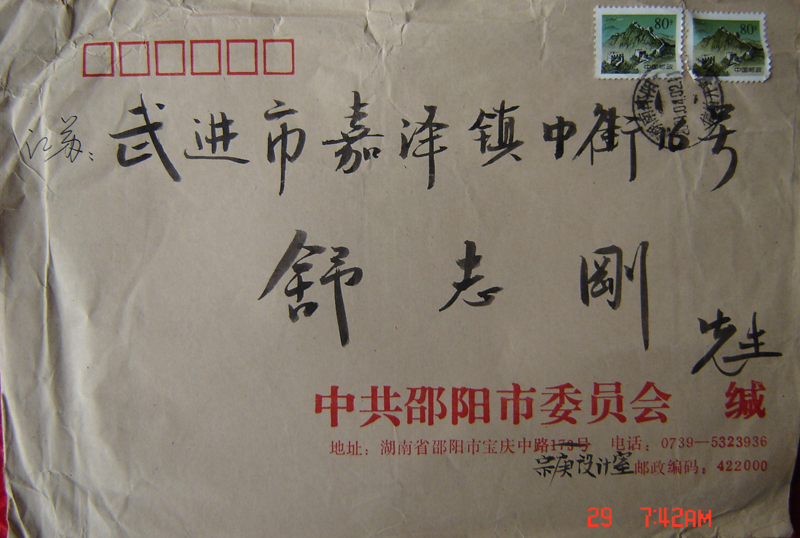 80分 80分
中国邮政 中国邮政
江苏：武进市嘉泽镇中街16号
舒志刚
先生
中共邵阳市委员会 缄
地址：湖南省邵阳市宝庆中路173号 电话：0739—5323936
宗庚设计室 邮政编码：422000
29 7:42AM